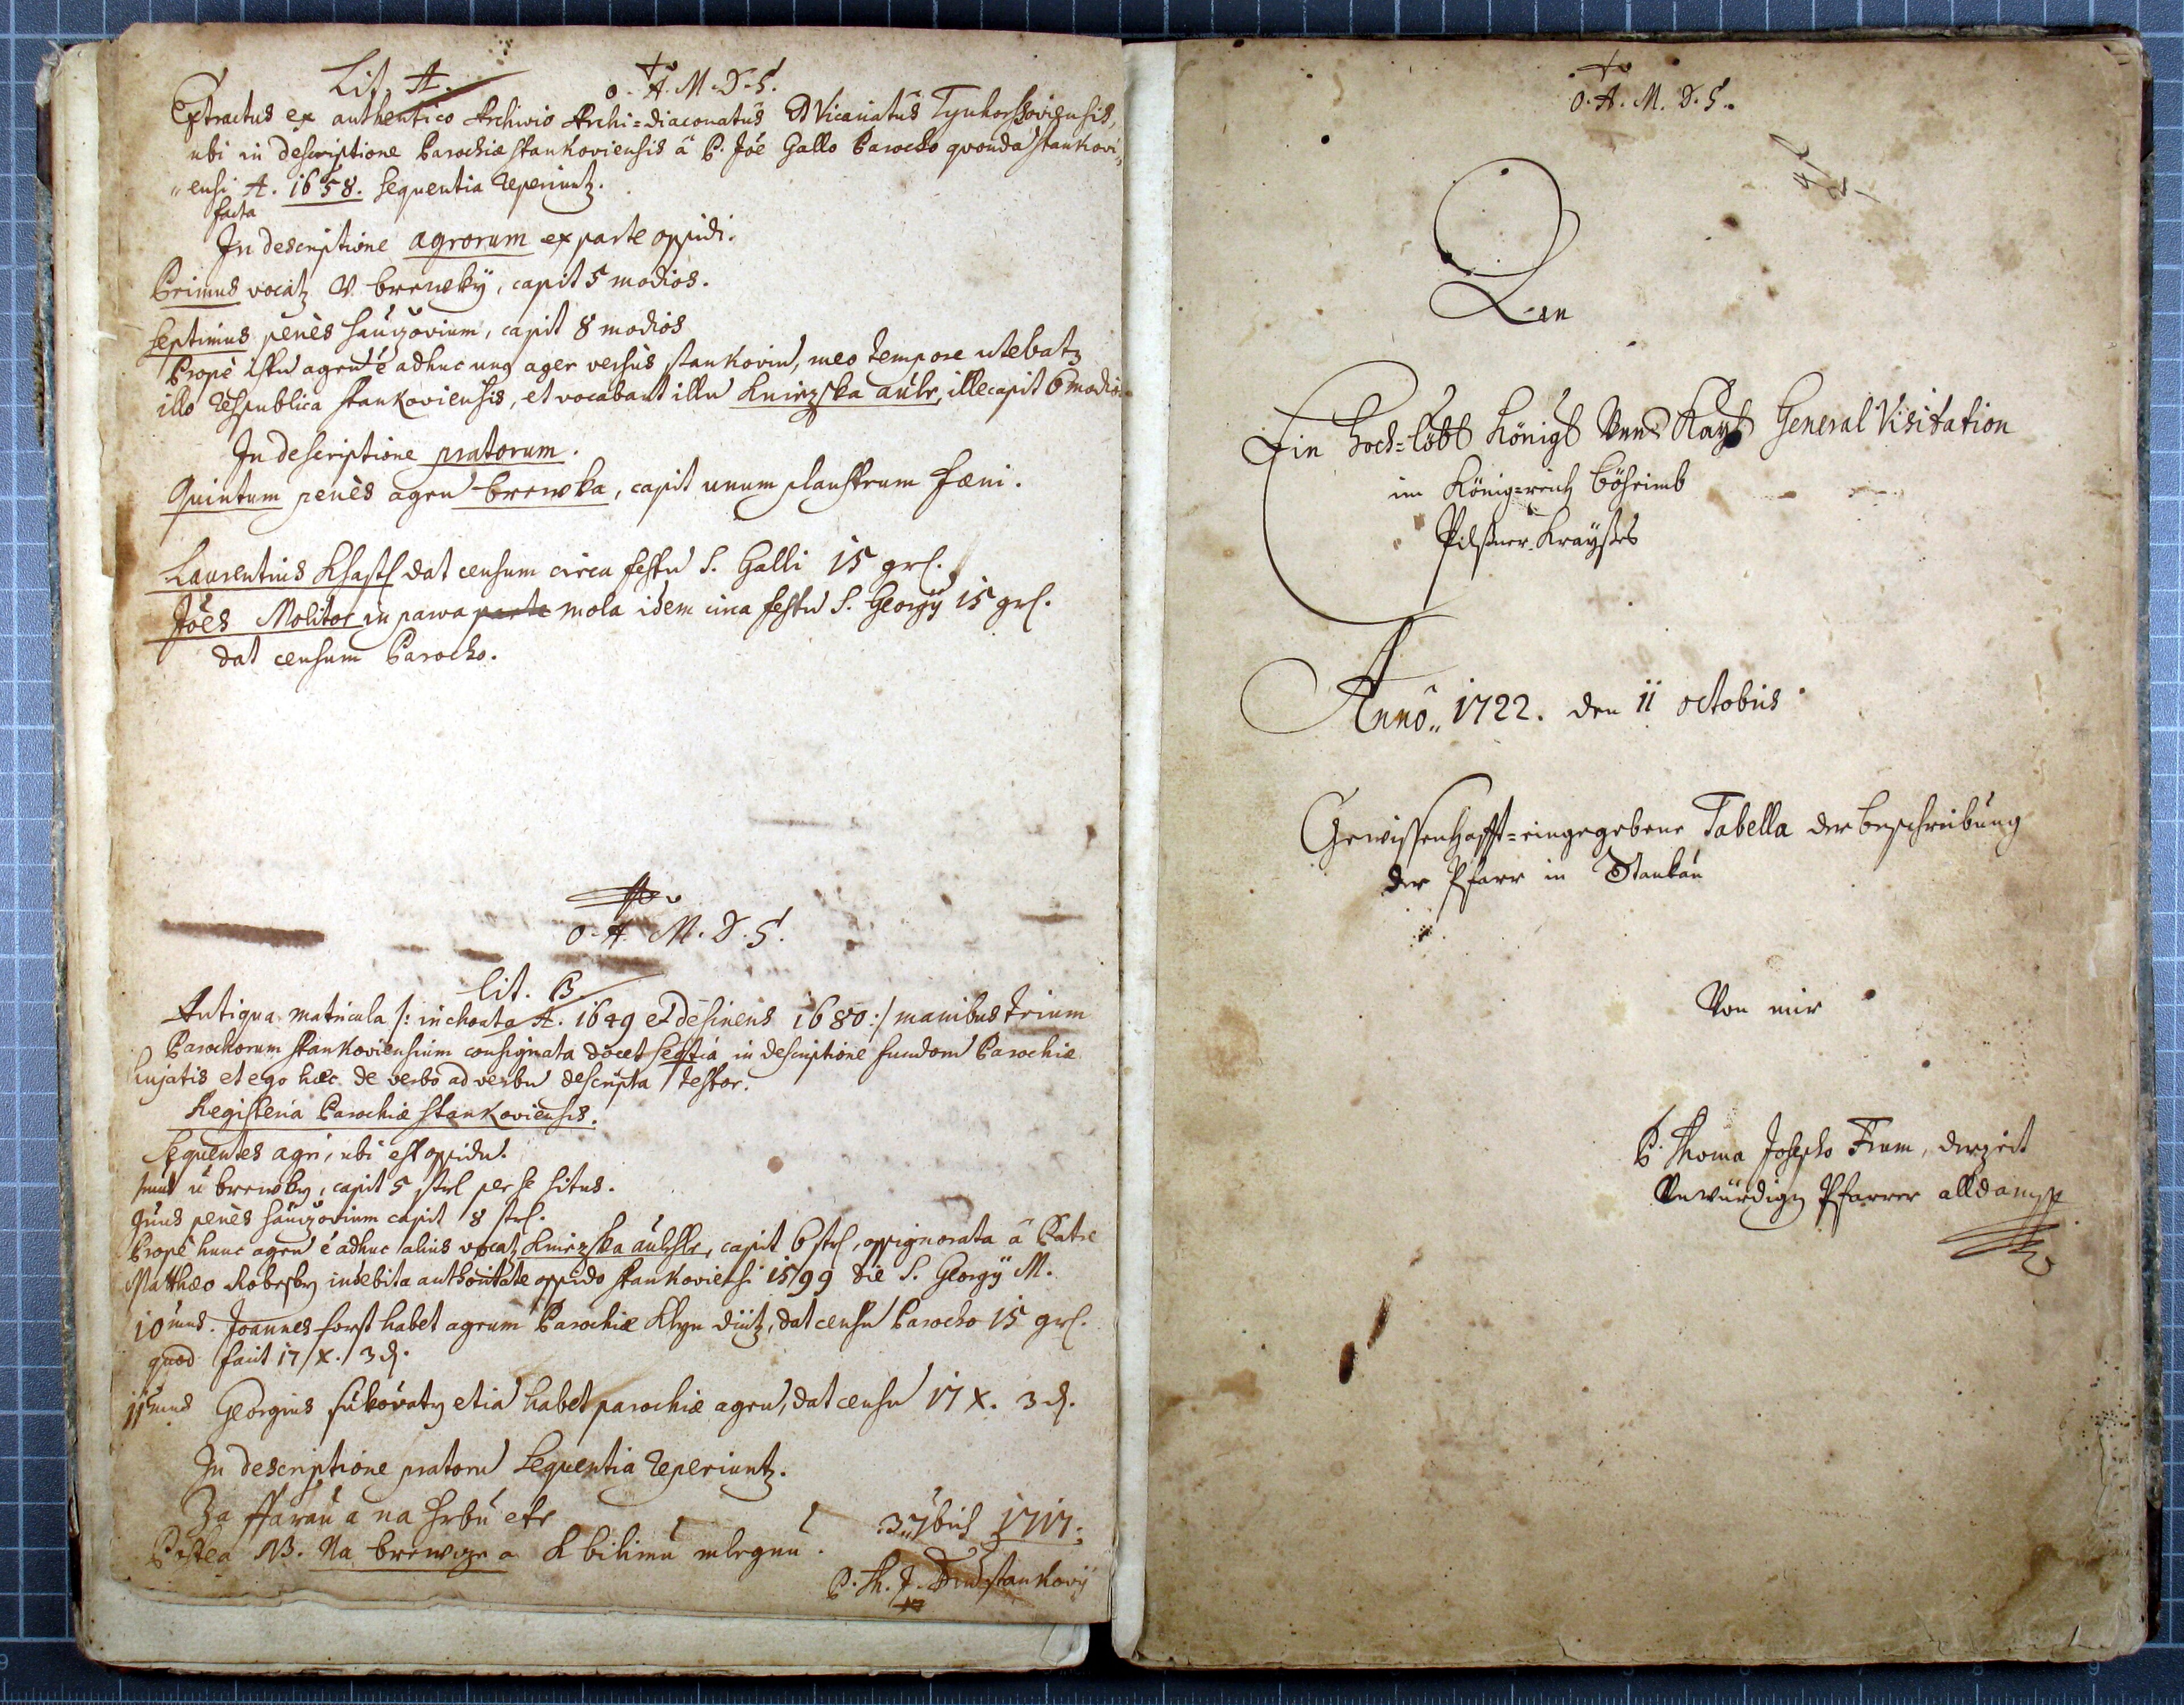 Lit. A.
O. A. M. D. G.
Extractus ex authentico Archivio Archi=diaconatûs & Vicariatûs Tynhorssoviensis,
ubi in descriptione Parochiæ Stankoviensis â P. Jõe Gallo Parocho quondã Stankovi„
„ensi A. 1658. sequentia reperiunt.
facta
In descriptione agrorum ex parte oppidi.
Primus vocat V. brewky, capit 5 modios.
Septimus penès capit 8 modios
Prope istũ agrũ ẽ adhuc unq ager versùs Stankoviũ, meo tempore utebat
illo respublica Stankoviensis, et vocabant illũ Kniezska aule, ille capit 6 modios
In descriptione pratorum.
Quintum penès agrũ brewka, capit unum plaustrum fæni.
Laurentius dat censum circa festũ S. Galli 15 grl.
Jões Molitor in parva parte mola idem circa festũ S. Georgÿ 15 grl.
dat censum Parocho.
O. A. M. D. G.
Lit. B.
Antiqua matricula /: inchoata A. 1649 et desinens 1680 :/ manibus trium
Parochorum Stankoviensium consignata docet in descriptione fundorũ Parochiæ
hujatis et ego hæc de verbo ad verbũ descripta testor.
Registeria Parochiæ Stankoviensis.
Sequentes agri, ubi est oppidũ.
1mus u brewky, capit 5 strl per se situs.
7mus penès capit 8 strl.
Prope hunc agrũ ẽ adhuc alius vocat Kniezska capit 6 strl, oppignorata â Patre
Matthæo indebita authoritate oppido Stankoviensi 1599 die S. Georgÿ M.
10mus. Joannes forst habet agrum Parochiæ dat censũ Parocho 15 grl.
quod facit 17 X. 3 d.
11mus Georgius etiã habet parochiæ agrũ, dat censũ 17 X. 3 d.
In descriptione pratorũ sequentia reperiunt.
Za ffarau a na hrbu etc
Postea NB. Na brewcze a K bilimu mlegnu.
3. 7bris 1717.
P. Th. J. Stankovÿ
O. A. M. D. G.
Den
Ein Hoch=löbl Königl Vnd Kayl General Visitation
im König=reich Böheimb
Pilßner Kraÿßes
Anno 1722. den 11 octobris
Gewissenhafft=eingegebene Tabella der beschreibung
der Pfarr in Stankau
Von mir
P. Thoma Josepho Frum, derzeit
Vnwürdigen Pfarrer allda